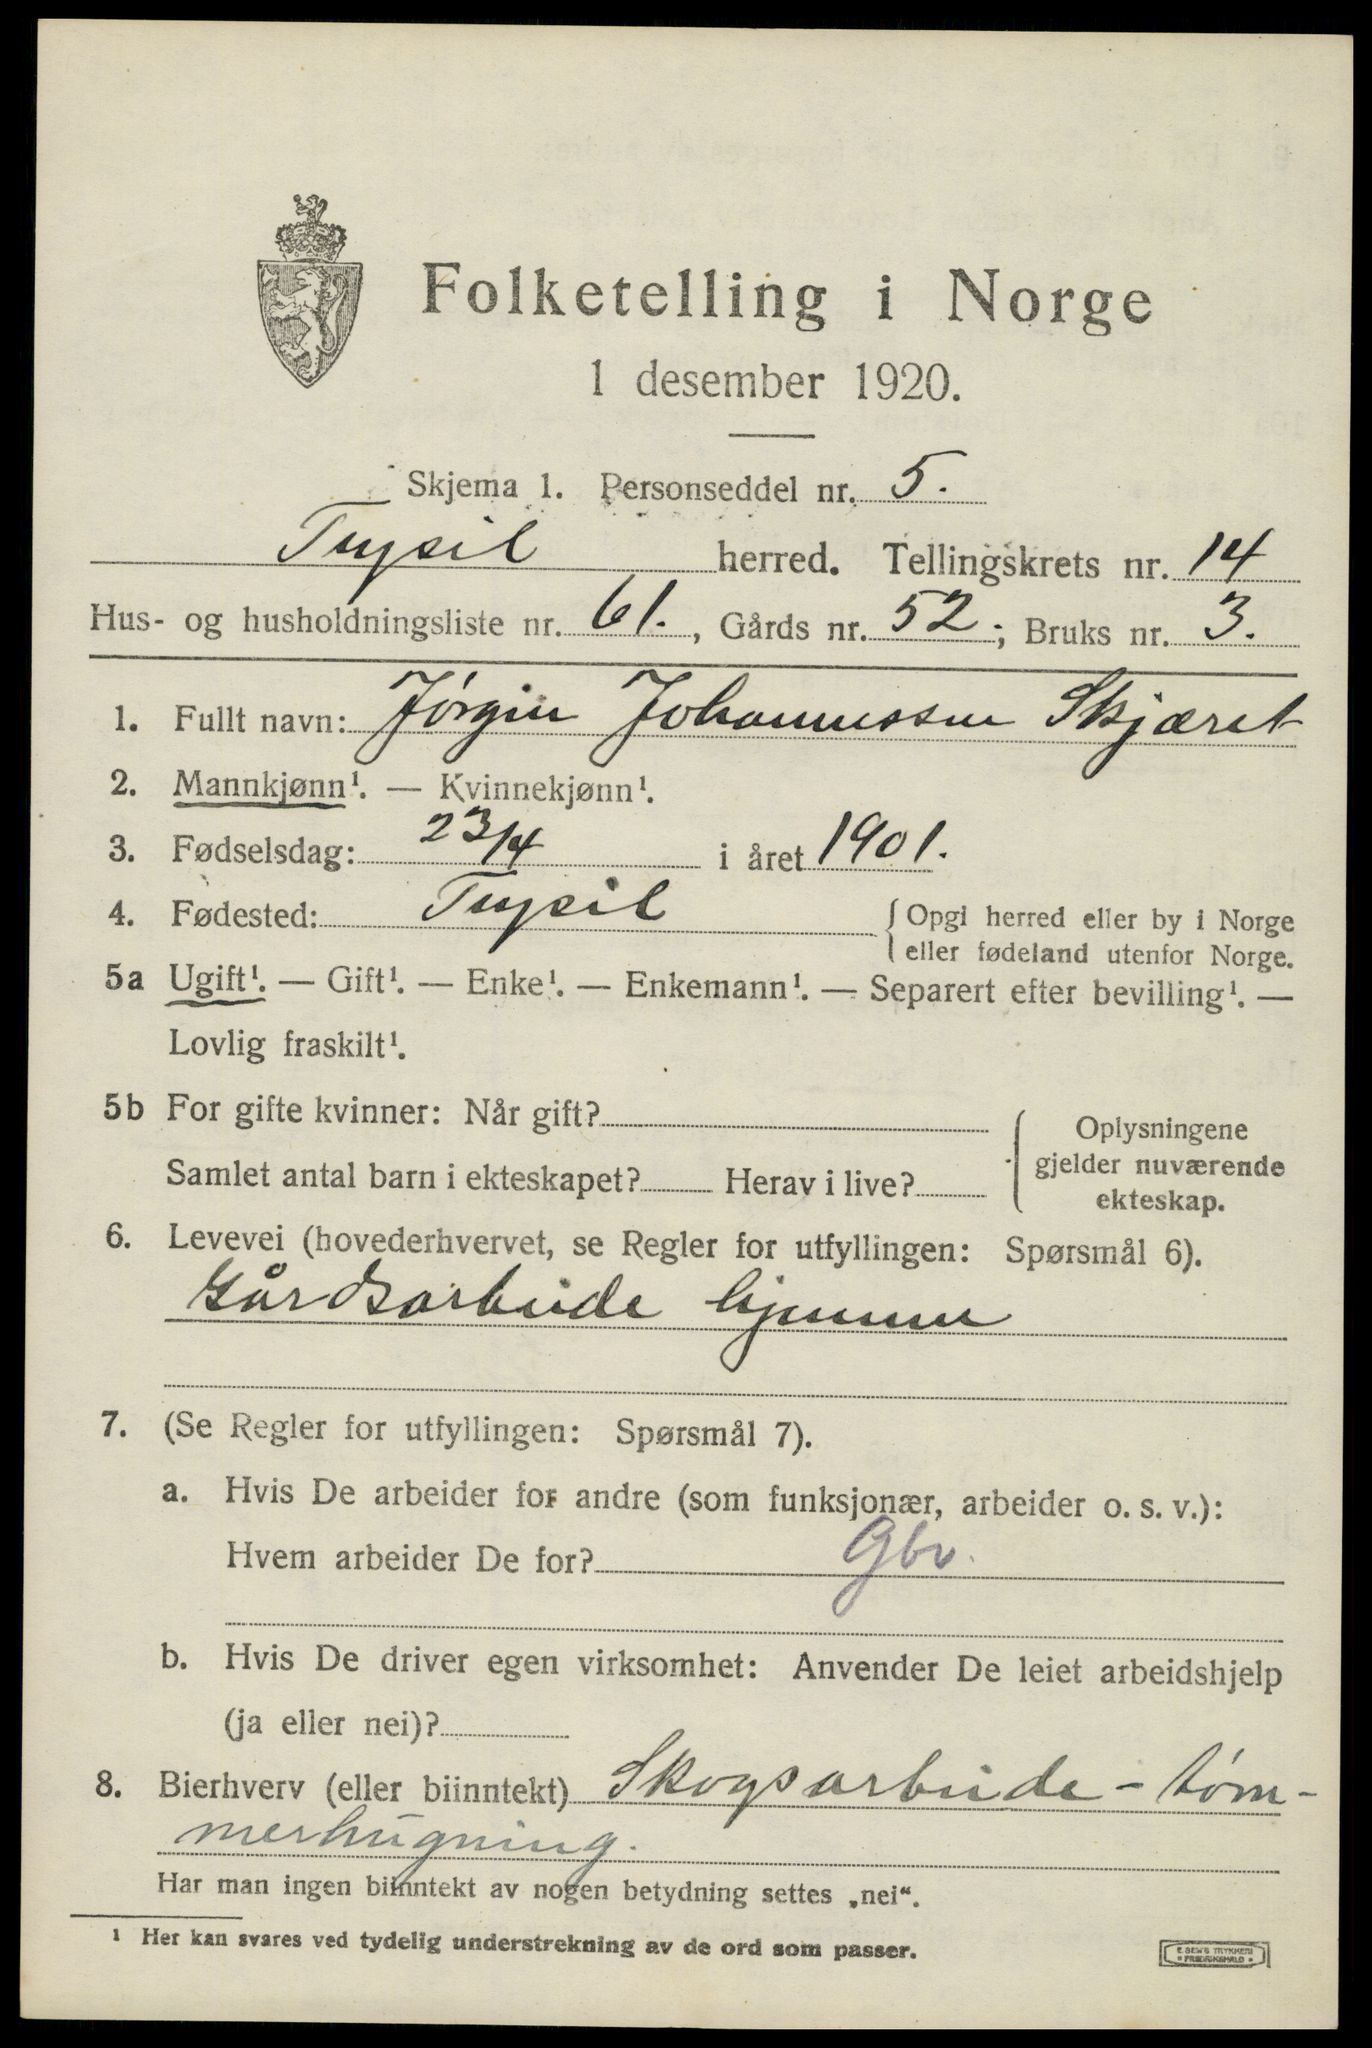 Folketelling i Norge
1 desember 1920.
Skjema 1. Personseddel nr. 5.
Trysil herred. Tellingskrets nr. 14
Hus- og husholdningsliste nr. 61., Gårds nr. 52.; Bruks nr. 3.
1. Fullt navn: Jørgen Johannessen Skjæret
2. Mannkjønn¹. — Kvinnekjønn¹.
3. Fødselsdag: 23/4 i året 1901.
4. Fødested: Trysil {Opgi herred eller by i Norge
eller fødeland utenfor Norge.
5a Ugift¹. — Gift¹. — Enke¹. — Enkemann¹. — Separert efter bevilling¹. —
Lovlig fraskilt¹.
5b For gifte kvinner: Når gift?
Samlet antal barn i ekteskapet? Herav i live?
Oplysningene
gjelder nuværende
ekteskap.
6. Levevei (hovederhvervet, se Regler for utfyllingen: Spørsmål 6).
Gårdsarbeide hjemme
7. (Se Regler for utfyllingen: Spørsmål 7).
a. Hvis De arbeider for andre (som funksjonær, arbeider o. s. v.):
Hvem arbeider De for? Gbr.
b. Hvis De driver egen virksomhet: Anvender De leiet arbeidshjelp
(ja eller nei)?
8. Bierhverv (eller biinntekt) Skogsarbeide - tøm-
merhugning.
Har man ingen biinntekt av nogen betydning settes „nei“.
¹ Her kan svares ved tydelig understrekning av de ord som passer.
E. SEM'S TRYKKERI
FREDRIKSHALD